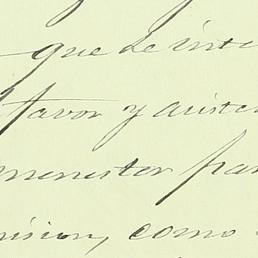 que de inte
favor y auste
menester par
nision, como